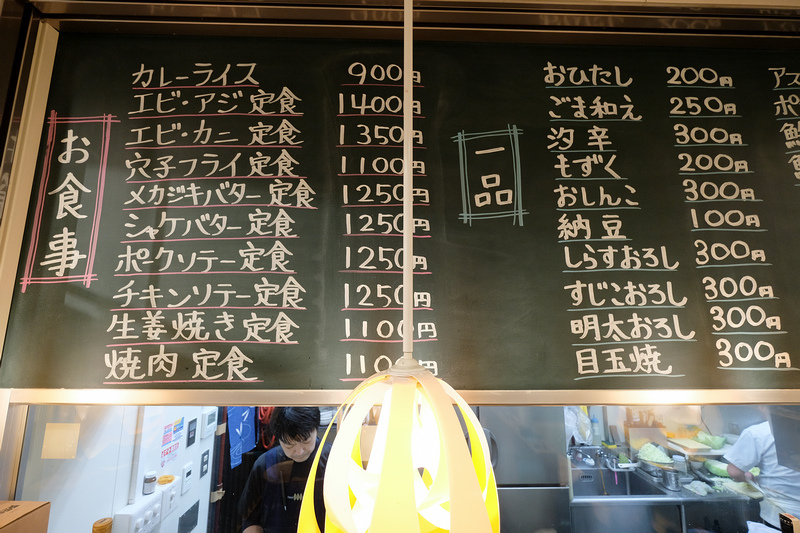 お食事
カレーライス 900円
エビ・アジ定食 1400円
エビ・カニ定食 1350円
穴子フライ定食 1100円
メカジキバター定食 1250円
シャケバター定食 1250円
ポークソテー定食 1250円
チキンソテー定食 1250円
生姜焼き定食 1100円
焼肉定食 1100円
一品
おひたし 200円
ごま和え 250円
汐辛 300円
もずく 200円
おしんこ 300円
納豆 100円
しらすおろし 300円
すじこおろし 300円
明太おろし 300円
目玉焼 300円